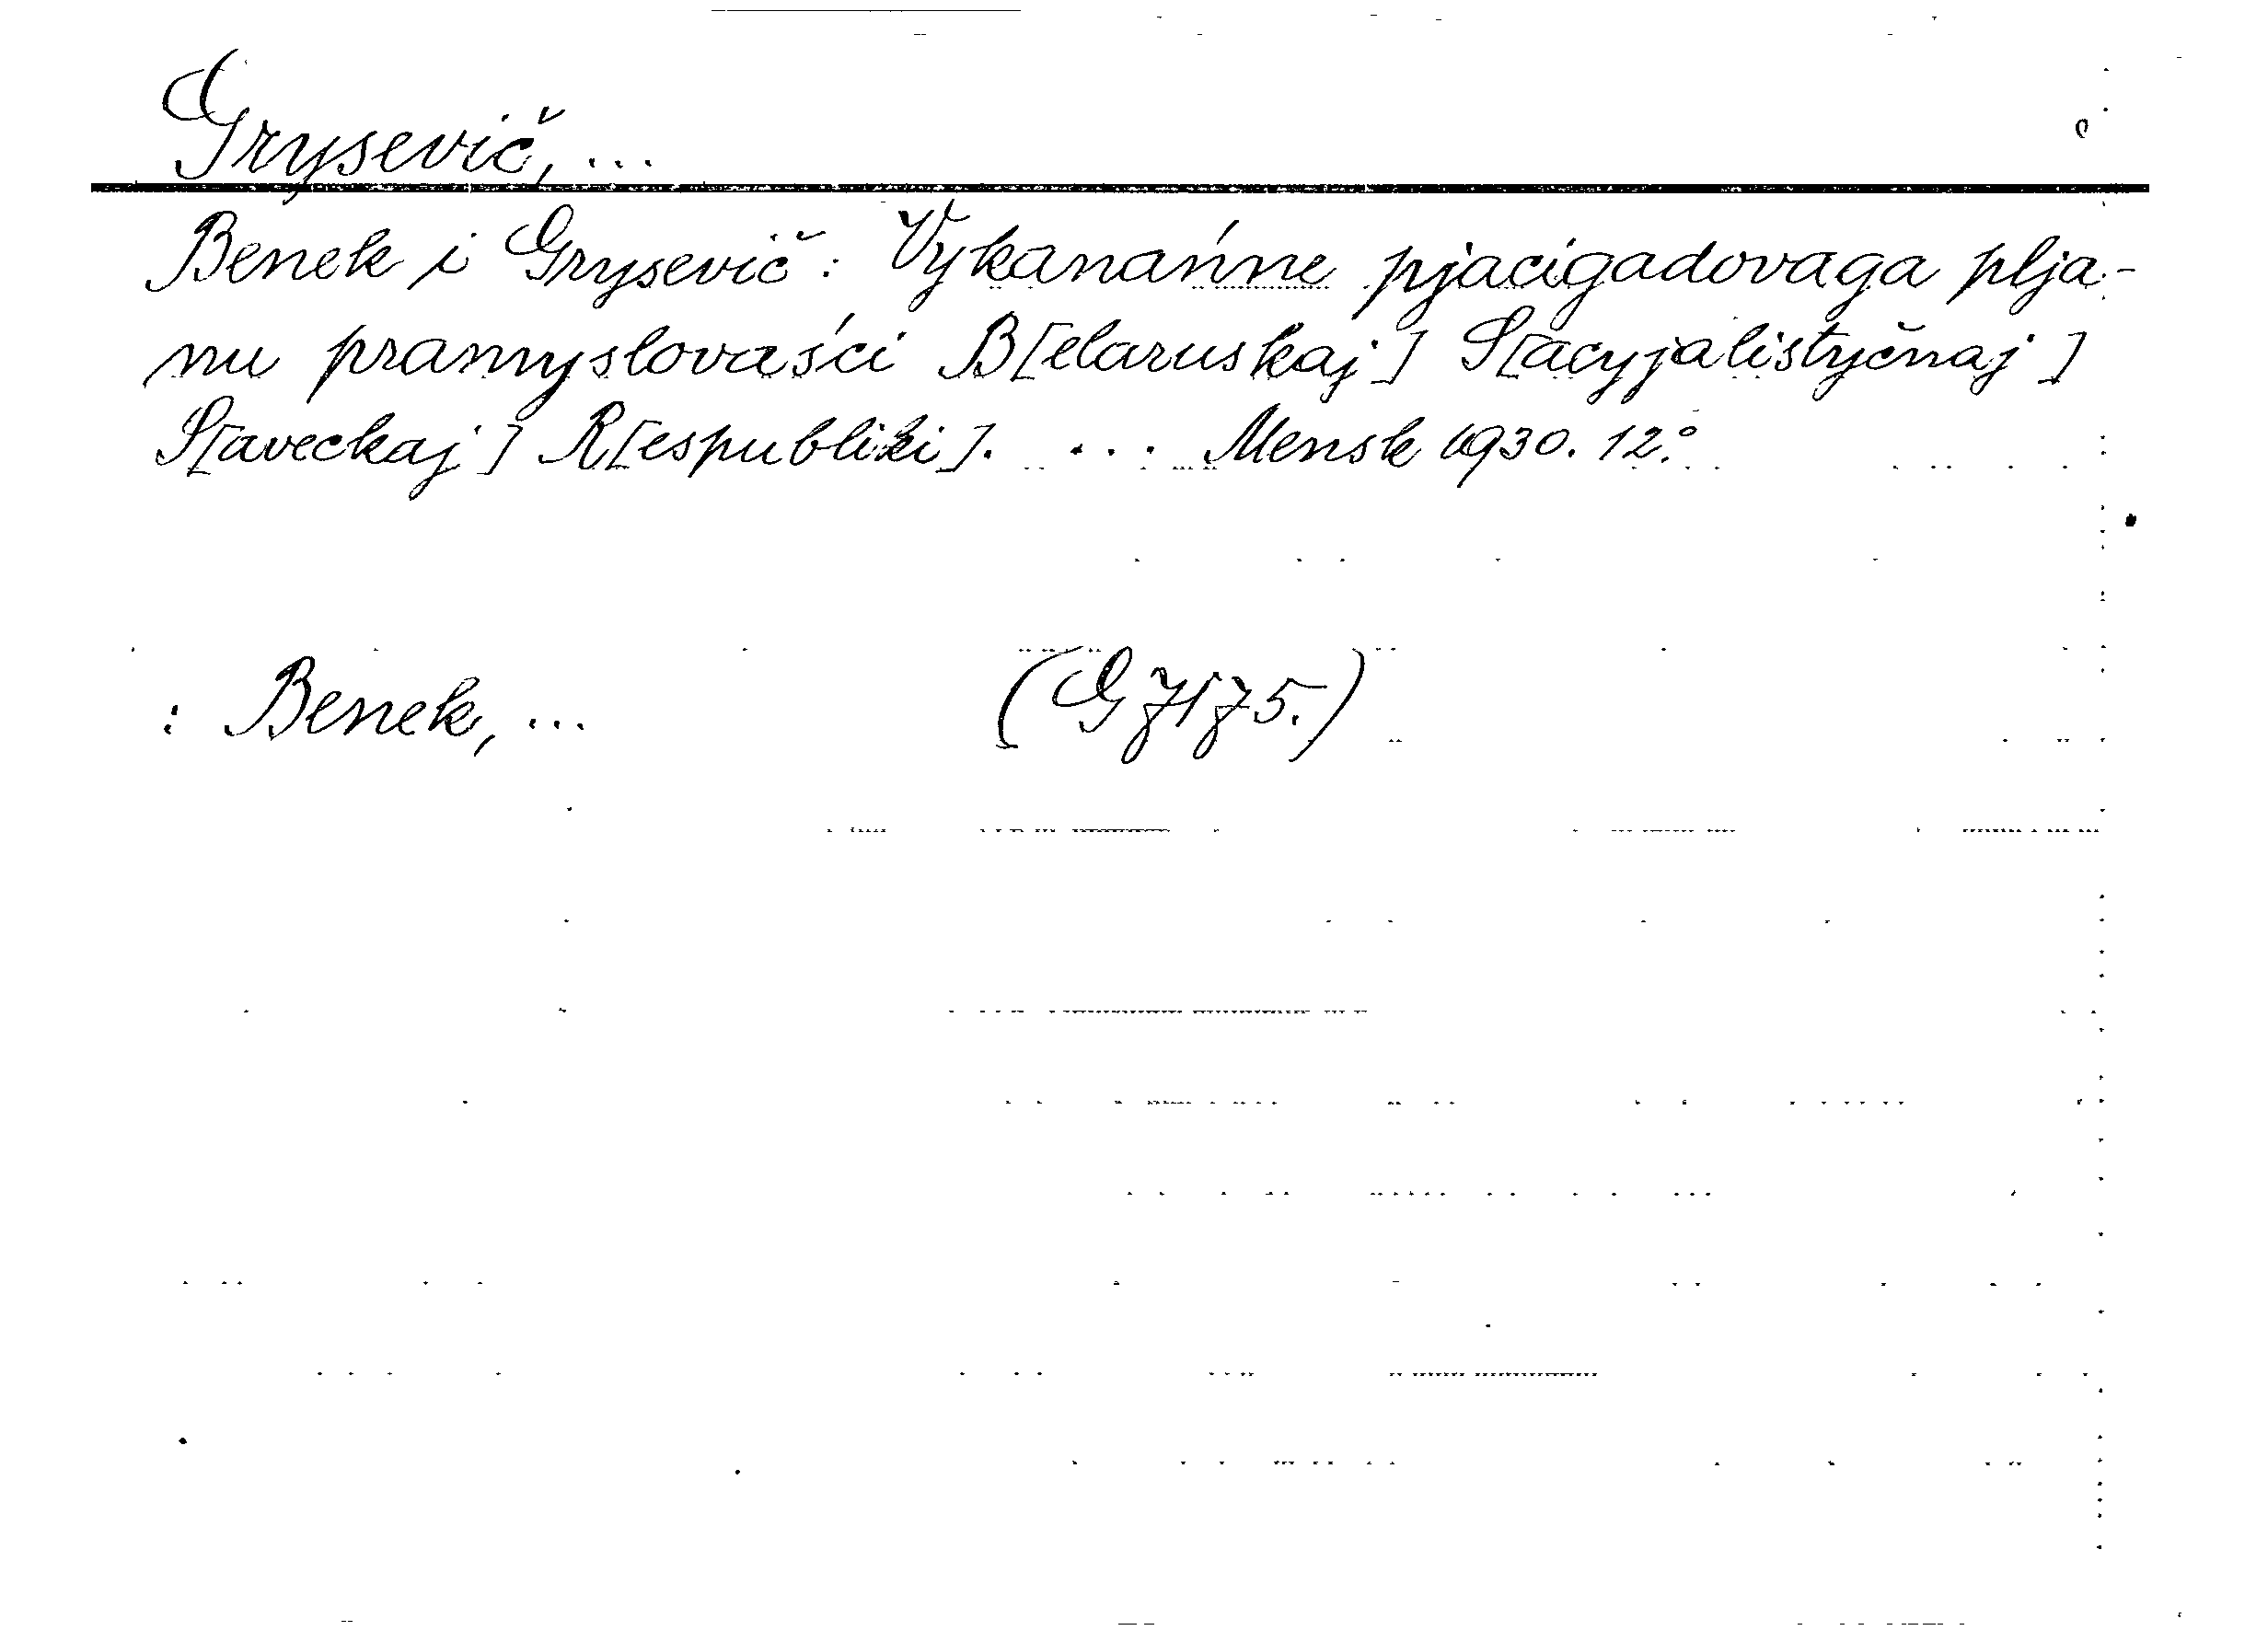 Grysevič, ...
Benek i Grysevič: Vykanańne pjacigadovaga plja-
nu pramyslovaści B[elaruskaj] S[acyjalistyčnaj]
S[aveckaj] R[espubliki]. ... Mensk 1930. 12.°
: Benek, ... (G 7175.)